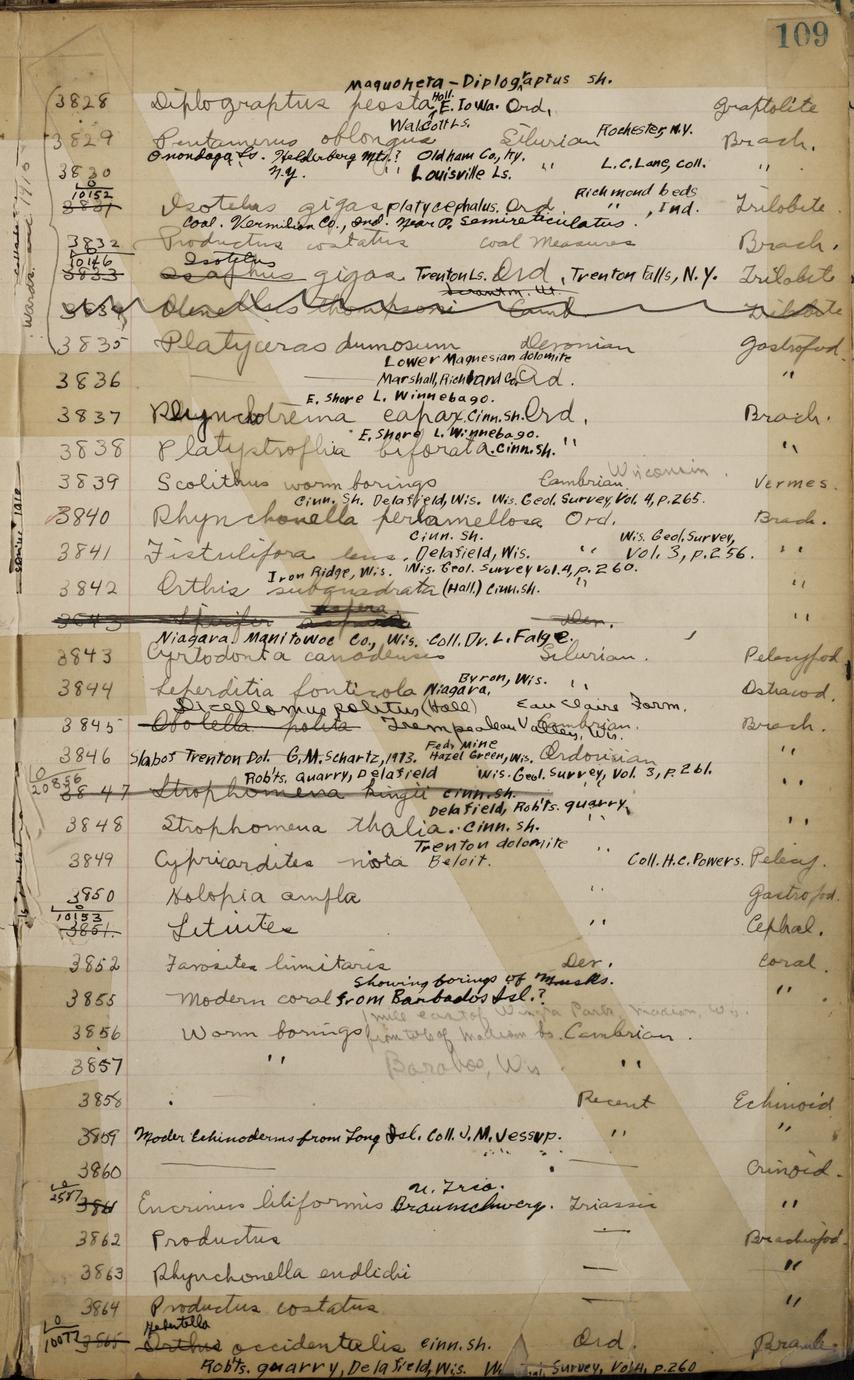 109
Maquoketa - Diplograptus sh.
3828 Diplograptus peosta Hall. E. Iowa. Ord. Graptolite
Walcott Ls.
3829 Pentamerus oblongus Silurian Rochester, N.Y. Brach.
Onondaga Ls. Helderberg Mts.? Oldham Co., Ky.
3830 N.Y. " Louisville Ls. " L.C. Lane, coll. "
10152 Richmond beds
3831 Isotelus gigas platycephalus. Ord. " , Ind. Trilobite
Coal. Vermilion Co., Ind. Near P. Semireticulatus.
3832 Productus costatus Coal Measures Brach.
10146 Isotelus
3833 Asaphus gigas Trenton Ls. Ord, Trenton Falls, N.Y. Trilobite
3834 Olenellus thompsoni Camb Trilobite
3835 Platyceras dumosum Devonian Gastropod.
Lower Magnesian dolomite
3836 Marshall, Richland Co. Ord. "
E. Shore L. Winnebago.
3837 Rhynchotrema capax. Cinn. sh. Ord. Brach.
E. Shore L. Winnebago.
3838 Platystrophia biforata. Cinn. sh. " "
3839 Scolithus worm borings Cambrian Wisconsin. Vermes.
Cinn. Sh. Delafield, Wis. Wis. Geol. Survey, Vol. 4, p. 265.
3840 Rhynchonella perlamellosa Ord. Brach.
Cinn. sh. Wis. Geol. Survey,
3841 Fistulifora lens. Delafield, Wis. " Vol. 3, p. 256. "
Iron Ridge, Wis. Wis. Geol. Survey Vol. 4, p. 260.
3842 Orthis subquadrata (Hall.) Cinn. sh. " "
aspera
3843 Spirifer aspera Dev. "
Niagara. Manitowoc Co., Wis. Coll. Dr. L. Falge.
3843 Cyrtodonta canadensis Silurian. Pelecypod
Byron, Wis.
3844 Leperditia fonticola Niagara, " Ostracod.
Dicellomus politus (Hall) Eau Claire Form.
3845 Obolella polita Trempealeau Valley, Wis. Cambrian. Brach.
Feds Mine
3846 Slabof Trenton Dol. G.M. Schartz, 1913. Hazel Green, Wis. Ordovician "
20856 Rob'ts. Quarry, Delafield Wis. Geol. Survey, Vol. 3, p. 261.
3847 Strophomena kingii Cinn. sh. " "
Delafield, Rob'ts. quarry,
3848 Strophomena thalia. Cinn. sh. " "
Trenton dolomite
3849 Cypricardites niota Beloit. " Coll. H.C. Powers. Pelecy.
3850 Holopia ampla " Gastropod.
10153
3851. Lituites " Cephal.
3852 Favosites limitaris Dev. Coral.
Showing borings of Musks.
3855 Modern coral from Barbados Isl.? "
1 mile east of Wingra Park, Madison, Wis.
3856 Worm borings from top of Madison bs. Cambrian.
3857 " Baraboo, Wis "
3858 Recent Echinoid
3859 Moder Echinoderms from Long Isl. Coll. J.M. Jessup. " "
3860 Crinoid.
2587 U. Trias.
3861 Encrinus liliformis Braunschweig. Triassic "
3862 Productus — Brachiopod.
3863 Rhynchonella endlichi — "
3864 Productus costatus — "
Hebertella
10072 3865 Orthis occidentalis Cinn. sh. Ord. Branch
Rob'ts. quarry, Delafield, Wis. Survey, Vol 4, p. 260